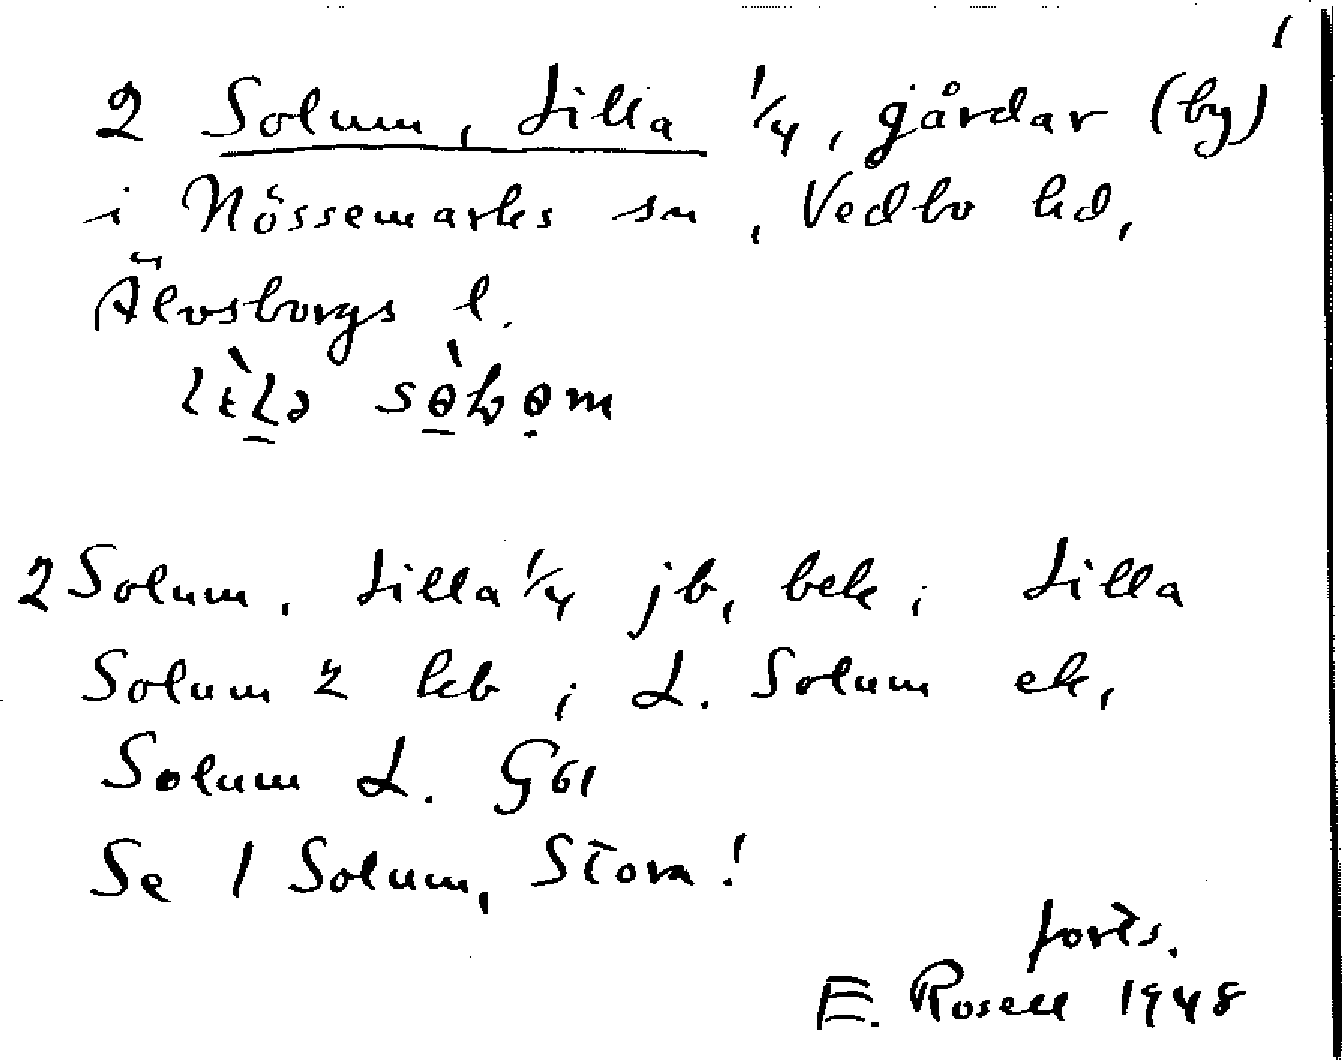 1
2 Solum, Lilla 1/4, gårdar (by)
i Nössemarks sn, Vedbo hd,
Älvsborgs l.
2 Solum, Lilla 1/4 jb, bek; Lilla
Solum 2 kb; L. Solum ek,
Solum L. G61
Se 1 Solum, Stora!
forts.
E. Rosell 1948